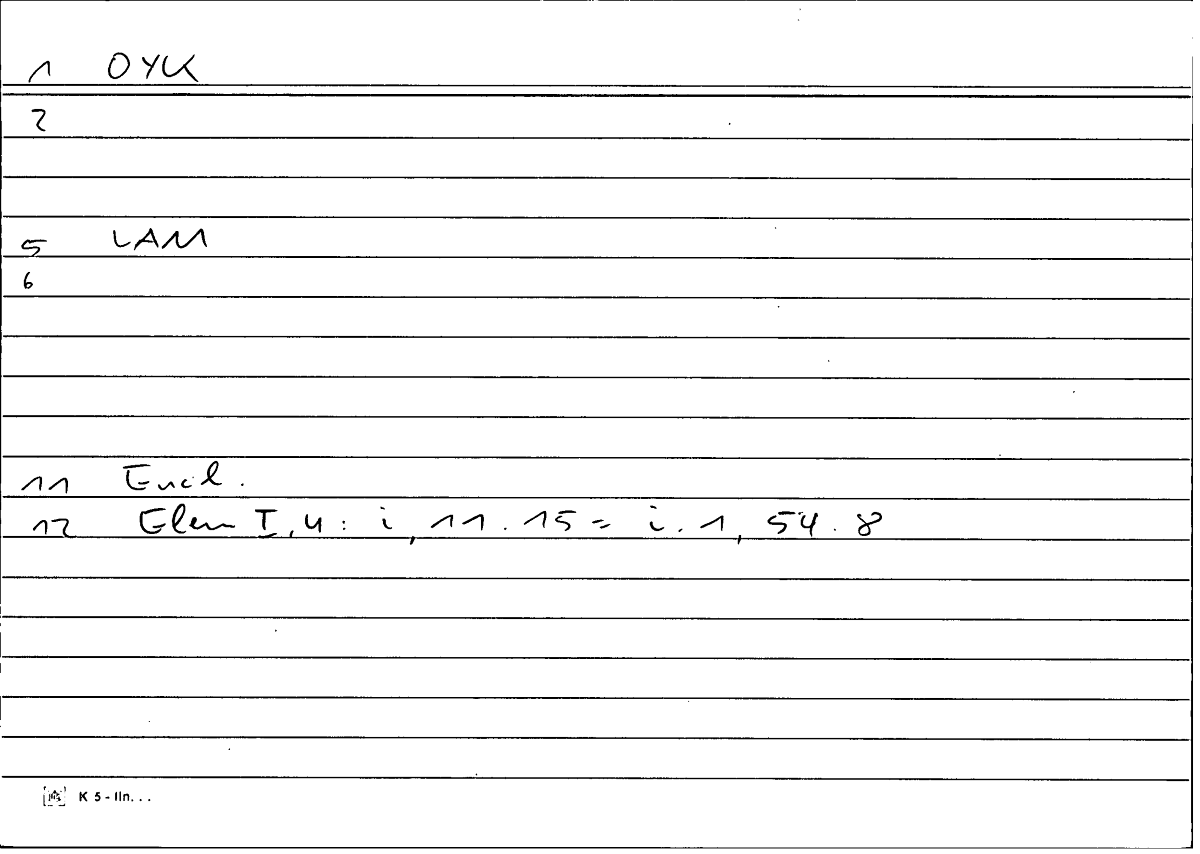 1 OYK
2
5 LAM
6
11 Eucl.
12 Elem I, 4 : i, 11. 15 = i. 1, 54. 8
K 5 - lin. . .